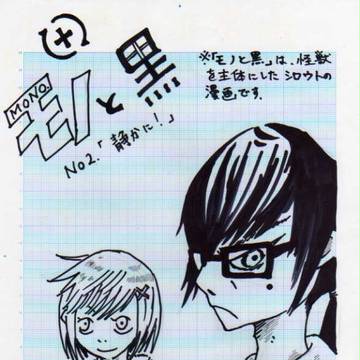 MONO
モノと黒
No2.「静かに!」
※「モノと黒」は、怪獣
を主体にしたシロウトの
漫画です。